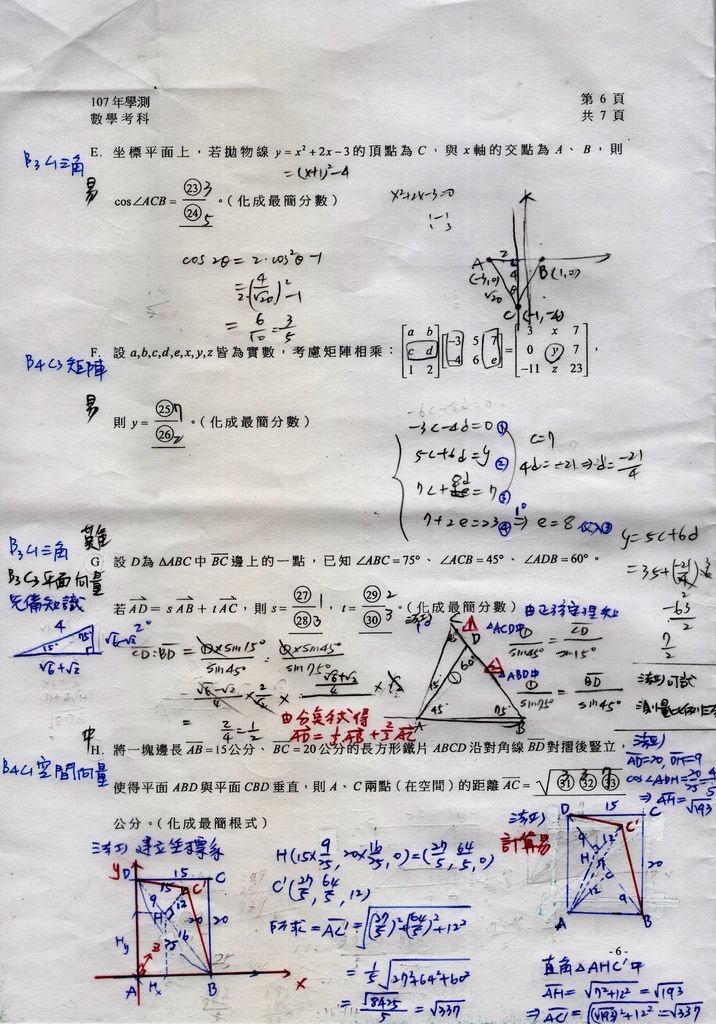 107年學測
數學考科
第 6 頁
共 7 頁
B3C1三角
易
E. 坐標平面上,若拋物線 y=x²+2x-3的頂點為C,與x軸的交點為A、B,則
=(x+1)²-4
cos∠ACB= ㉓3/㉔5。(化成最簡分數)
x²+2x-3=0
cos2θ=2·cos²θ-1
=2·(4/√20)²-1
=6/10=3/5
A
(-3,0)
2
4
√20
θ
B(1,0)
C(-1,-4)
B4C3矩陣
易
F. 設a,b,c,d,e,x,y,z皆為實數,考慮矩陣相乘:[a b; c d; 1 2][-3 5 7; 4 6 e]=[3 x 7; 0 y 7; -11 z 23],
則 y= ㉕7/㉖2。(化成最簡分數)
-3c-4d=0 ①
5c+6d=y ②
7c+8d=7 ③
7+2e=23 ④ ⇒ e=8
c=7
4d=-21⇒d=-21/4
y=5c+6d
=35+(-21/4)·6
-63/2
7/2
B3C1三角
B3C3平面向量
先備知識
難
G. 設D為△ABC中 BC 邊上的一點,已知∠ABC=75°、∠ACB=45°、∠ADB=60°。
若 AD=sAB+tAC,則 s= ㉗1/㉘3,t= ㉙2/㉚3。(化成最簡分數)
4
15°
75°
√6-√2
√6+√2
CD:BD=①×sin15°/sin45°:①×sin45°/sin75°
=2/4=1/2
由分點公式得
AD=1/3AB+2/3AC
C
D
60°
①
15
45
75°
A
B
由正弦定理知
△ACD中
①/sin45°=CD/sin15°
△ABD中
①/sin75°=BD/sin45°
B4C1空間向量
中
H. 將一塊邊長 AB=15公分、BC=20公分的長方形鐵片 ABCD 沿對角線 BD 對摺後豎立,
使得平面 ABD 與平面 CBD 垂直,則 A、C 兩點(在空間)的距離 AC=√㉛㉜㉝ 3 3 7
公分。(化成最簡根式)
AD=20, DH=9
cos∠ADH=20/25=4/5
⇒AH=√193
建立坐標系
y
D
15
C
C'
9
12
H
20
20
16
25
Hy
z
A
Hx
B
x
H(15×9/25, 20×16/25, 0)=(27/5, 64/5, 0)
C'(27/5, 64/5, 12)
所求=AC'=√((27/5)²+(64/5)²+12²)
=1/5√(27²+64²+60²)
=√8425/5=√337
計算易
D
15
C
C'
9
12
H
7
12
20
9
A
B
直角△AHC'中
AH=√(7²+12²)=√193
⇒AC'=√((√193)²+12²)=√337
-6-